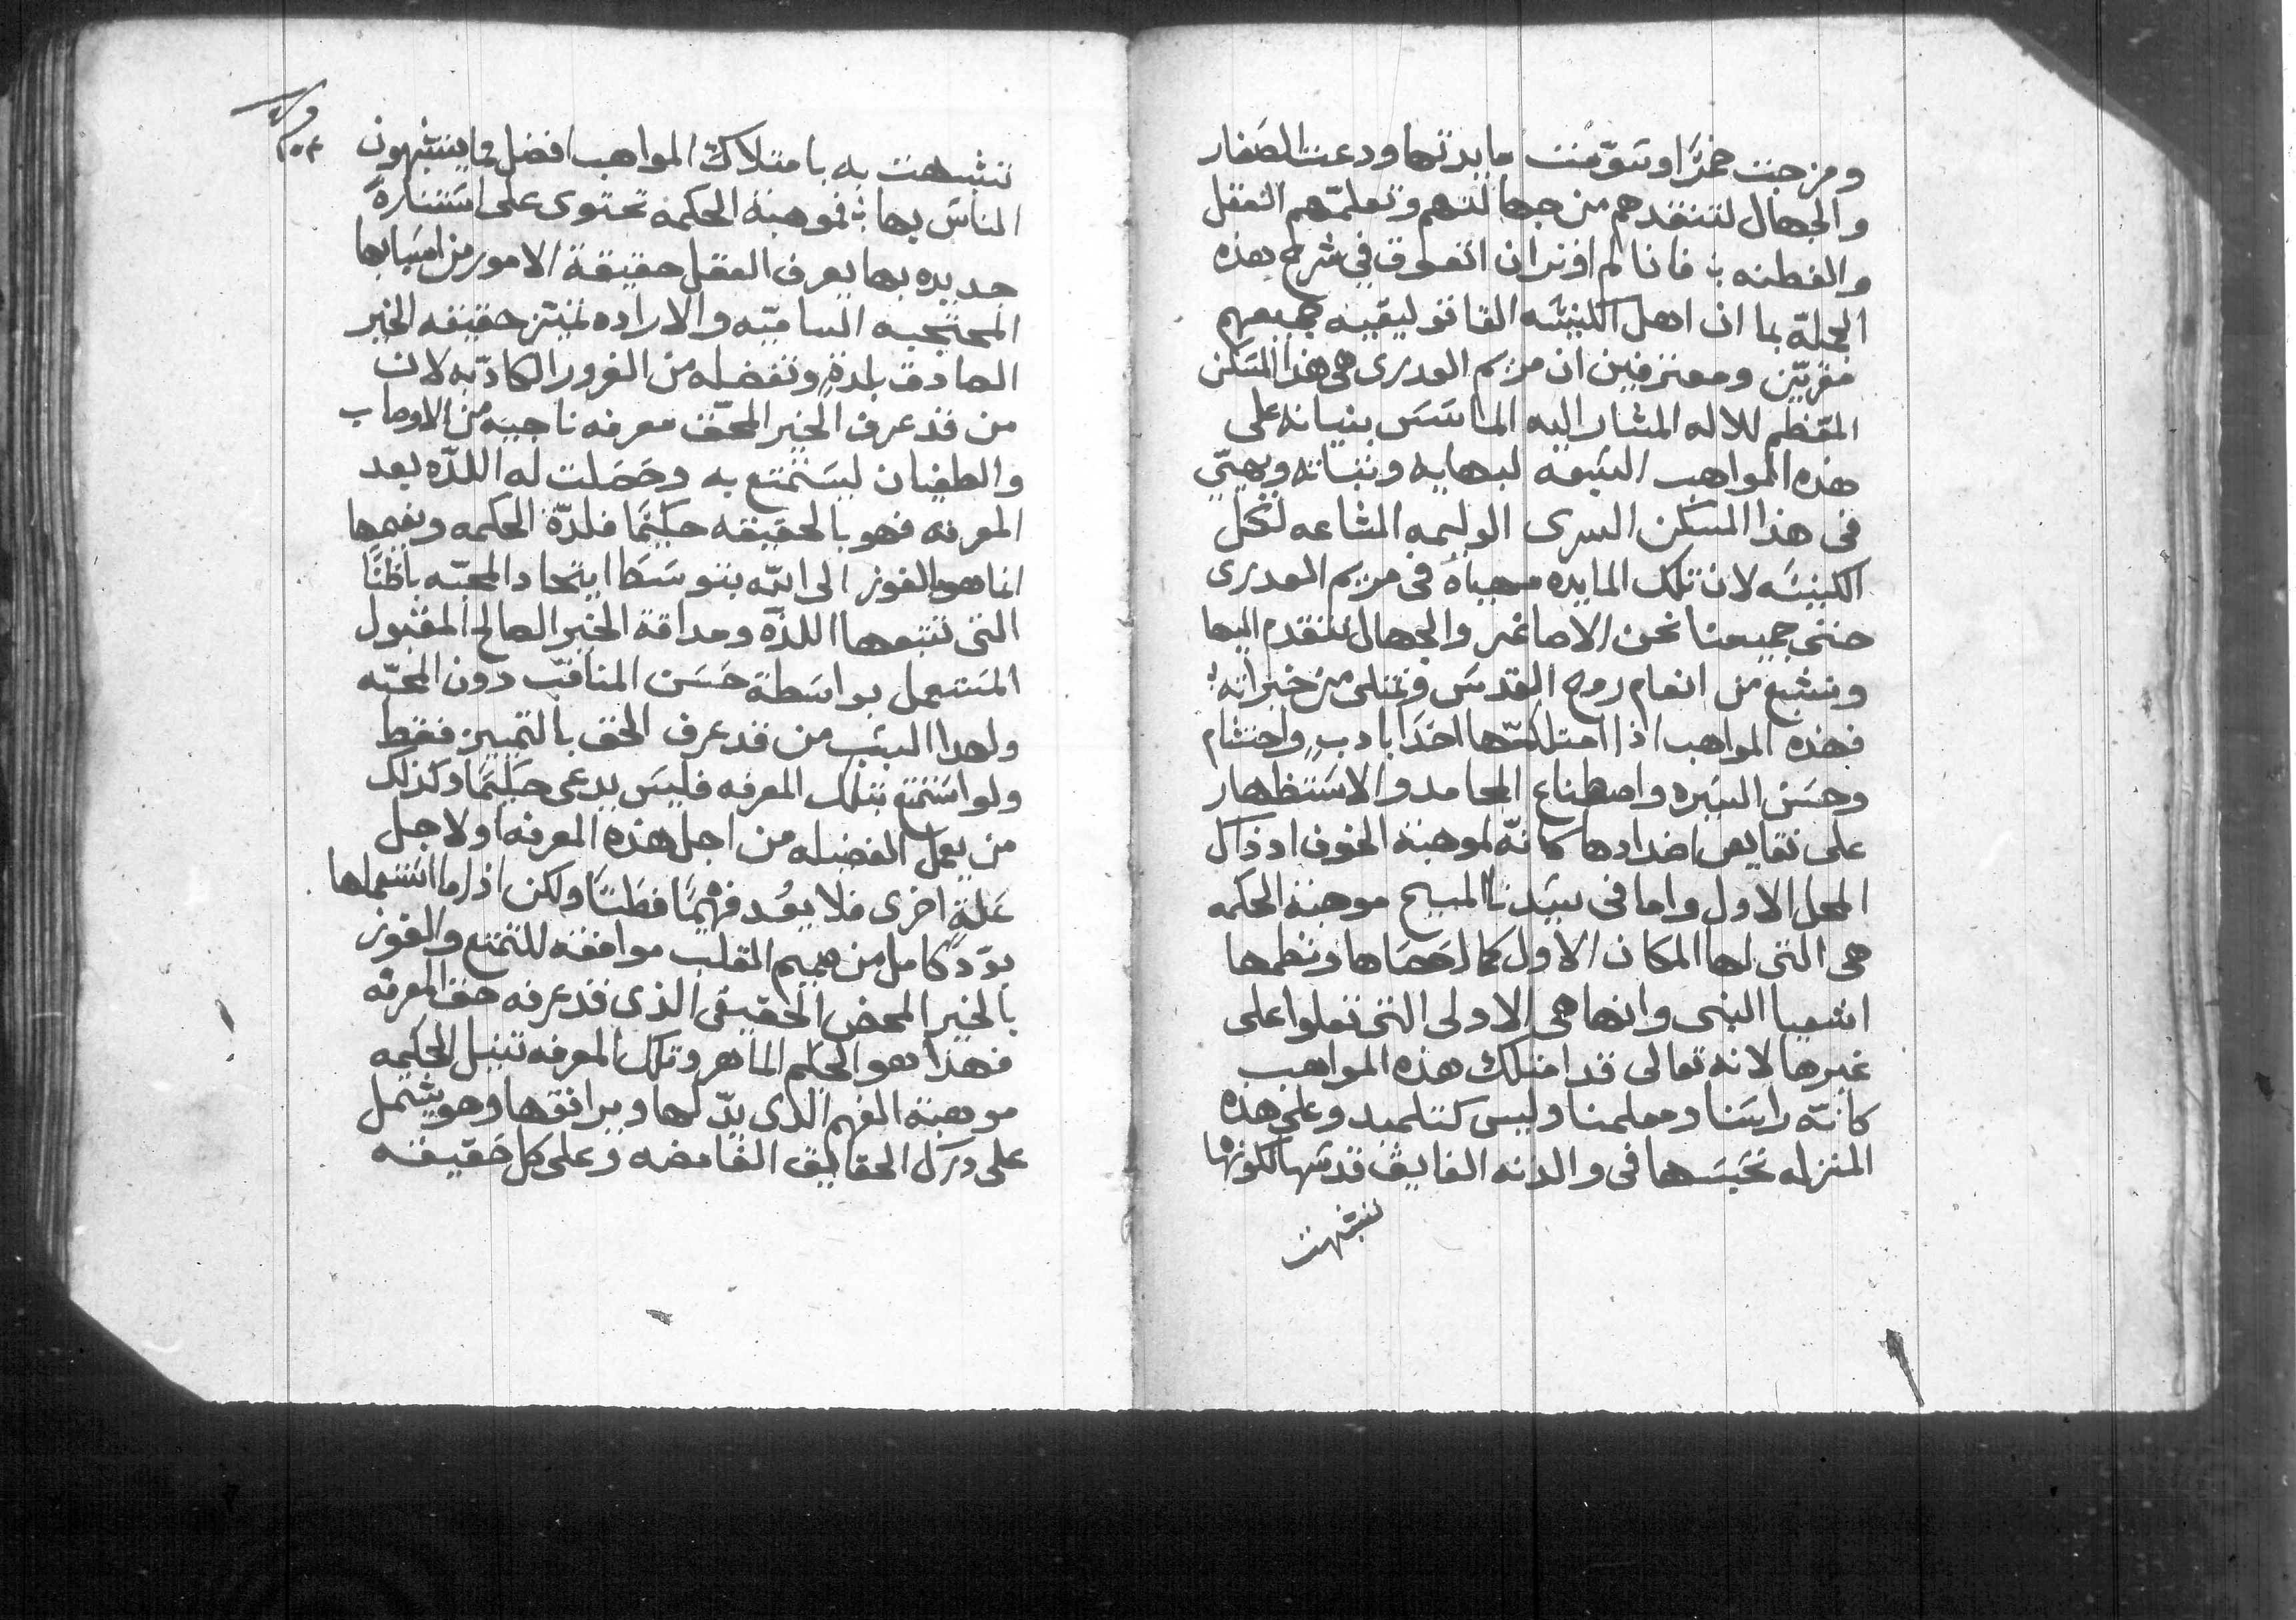 ومزجت خمرًا وسَوّمنت مايدتها ودعت الصَغار
والجهال لتنقدهم من جهالتهم وتعلمّهم العقل
والفطنه ؛ فانا لم اوثر ان اتعوق في شرح هذه
الجملة بما ان اهل الكنيسَه القاتوليقيه جميعهم
مقريّن ومعترفين ان مريم العدرى هى هذا المسَكن
المعّظم للاله المشار اليه الماسَسَ بنيانه على
هذه المواهب السَبعة لبهايه وثباته ويهيّي
فى هذا المسَكن السرى الوليمه المشاعه لكل
الكنيسَه لان تلك المايده مهياه فى مريم العدرى
حتى جميعنا نحن الاصاغر والجهال نتقدم اليها
ونشبع من انعام روح القدسَ ونمتلى من خيراته ؛
فهذه المواهب اذا امتلكتّها احدًا بادبٍ واحتشام
وحسَن السَيره واصطناع المحامد والاسَتظهار
على نقايص اضدادها كانهّ لموهبة الخوف اذ ذاك
المحل الاول واما فى سيَدنا المسيح موهبة الحكمه
هى التى لها المكان الاول كما احَصَاها ونظمها
اشعيا النبى وانها هى الاولى التى تعلوا على
غيرها لانه تعالى قد امتلك هذه المواهب
كانهّ رايسَنا ومعلمنا وليس كتلميد وعلى هذه
المنزله نحَسَبها فى والدته الفايق قدسَها لكونها
تشبهت
تشبهت به بامتلاك المواهب افضل مما يتشبهون
الناسَ بها ؛ فموهبة الحكمه تحتوى على اسَتنارةً
جديده بها يعرف العقل حقيقة الامور من اسَبابها
المحتجبه السَاميّه والاراده تميّز حقيقه الخير
الصادق بلدةٍ وتفضله من الغرور الكادبّه لان
من قد عرف الخير المحّق معرفه ناجيه من الاوصاب
والطغيان ليسَتمتع به وحَصَلت له اللدّه بعد
المعرفه فهو بالحقيقه حكيمًا فلدّة الحكمه ونعيمها
انما هو الفوز الى الله بتوسَط اتحاد المحبّه باطنًا
التى تتبعها اللدّه ومداقة الخير الصالح المقبول
المسَتعمل بواسَطة حَسَن المناقبّ دون المحبّه
ولهدا السَبَب من قد عرف الحق بالتمييز فقط
ولو اسَتمتع بتلك المعرفه فليسَ يدعى حَكيمًا وكذلك
من يعمل الفضيله من اجل هذه المعرفه او لاجل
عَلةٍ اخرى فلا يعُد فهيمًا فطَنًا ولكن اذا ما اسَتعملها
بوّدٍ كامل من صميم القلب موافقه للتمتع والفوز
بالخير المحض الحقيقى الذى قد عرفه حق المعرفه
فهذا هو الحكيم الماهر وتلك المعرفه تنيل الحكمه
موهبة الفهم الذى يدّ لها ويرافقها وهو يشتمل
على درَك الحقايق الغامضه وعلى كل حَقيقه